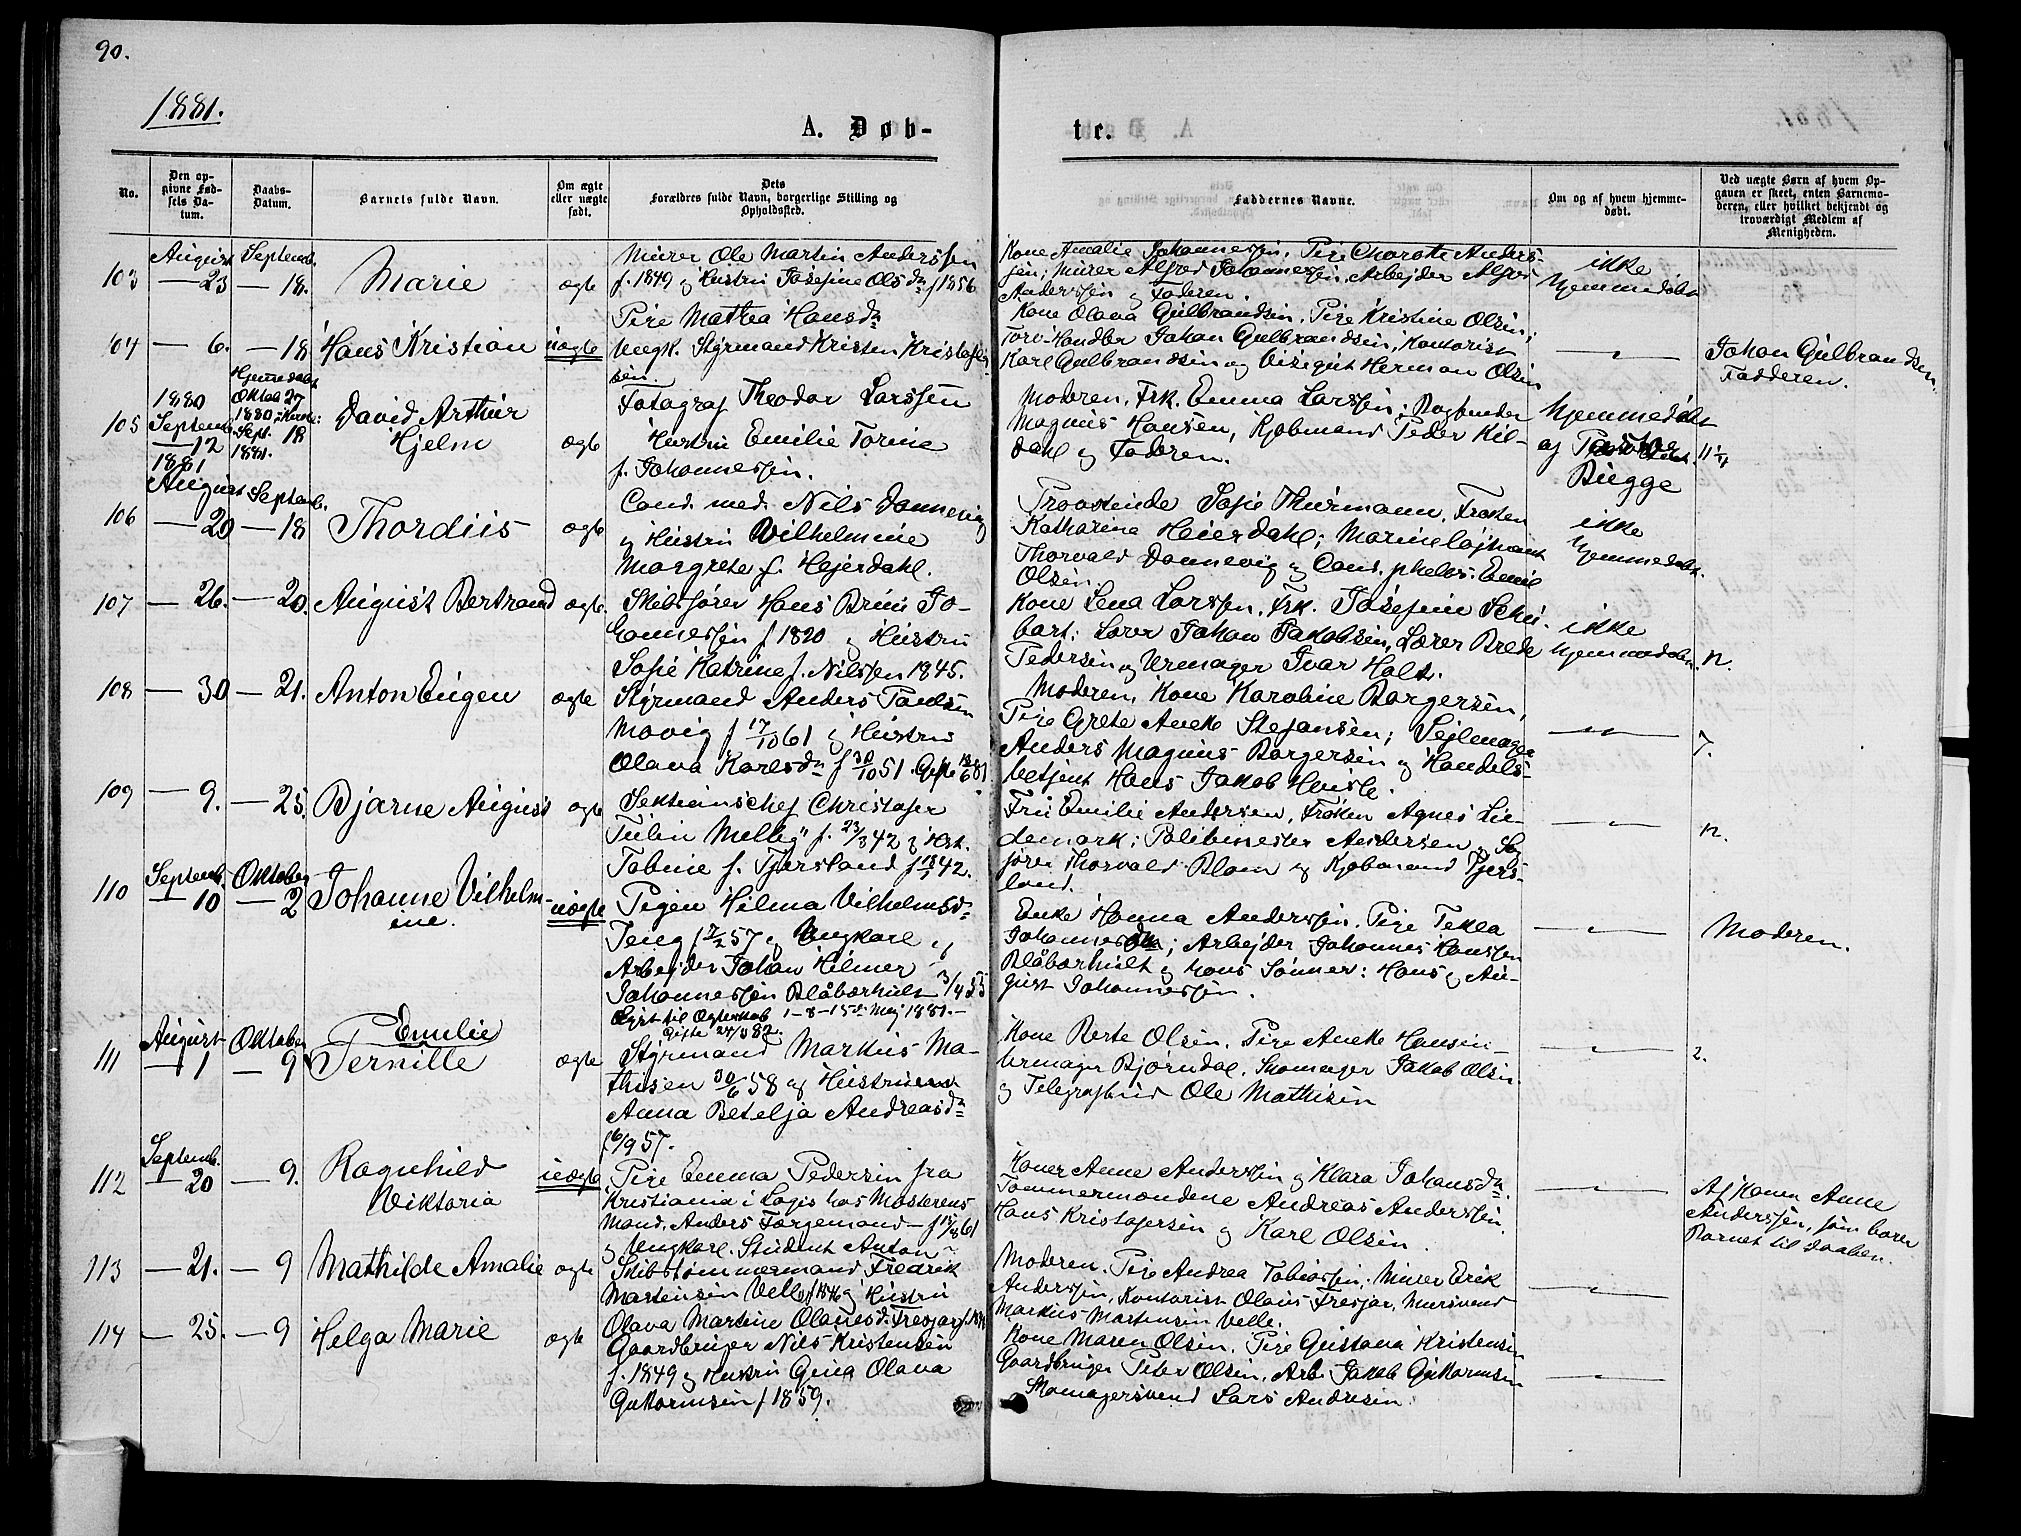 90.
1881.
A. Døb-
te.
No.
Den op-
givne Fød-
sels Da-
tum.
Daabs-
Datum.
Barnets fulde Navn.
Om ægte
eller uægte
født.
Dets
Forældres fulde Navn, borgerlige Stilling og
Opholdssted.
Faddernes Navne.
Om og af hvem hjemme-
døbt.
Ved uægte Børn af hvem Op-
gaven er skeet, enten Barnemo-
deren, eller hvilket bekjendt og
troværdigt Medlem af
Menigheden.
103
August
— 23
Septemb.
— 18.
Marie
ægte
Murer Ole Martin Anderssen
f. 1849 og Hustru Josefine Olsdn f 1856
Kone Amalie Johannessen, Pige Anders-
sen; Murer Alfred Johannessen, Arbejder Alfred
Anderssen og Faderen.
ikke
hjemmedøbt
104
— 6.
— 18
Hans Kristian
uægte
Pige Mathea Hansdn
Ungk. Styrmand Kristen Kristofer-
sen.
Kone Olava Gulbrandsen, Pige Kristine Olsen;
Johan Gulbrandsen, Kontorist
Karl Gulbrandsen og Herman Olsen
— " —
Johan Gulbrandsen
Fadderen.
105
1880
Septemb.
— 12
Hjemmedøbt
Oktob 27
1880
Sept. 18
1881.
David Arthur
Hjelm
ægte
Fotograf Theodor Larssen
Hustru Emilie Torine
f. Johannessen.
Moderen, Frk. Emma Larssen; Bogbinder
Magnus Hansen, Kjøbmand Peder Kil-
dahl og Faderen.
hjemmedøbt
af Pastor
Bugge
106
1881
August
— 20
Septemb.
— 18
Thordiis
ægte
Cand. med. Nils Dannevig
og Hustru Vilhelmine
Margrete f. Hejerdahl.
Provstinde Sofie Thurmann, Frøken
Katharina Heierdahl; Marineløjtnant
Thorvald Dannevig og Cand. philos. Emil
Olsen.
ikke
hjemmedøbt.
107
— 26.
— 20.
August Bertrand
ægte.
Skibsfører Hans Bruu Jo-
hannessen f 1820 og Hustru
Sofie Katrine f. Nilssen 1845.
Kone Lena Larssen, Frk. Josefine Schu-
bart; Lærer Johan Jakobsen, Lærer Brede
Pedersen og Urmager Ivar Holt.
ikke
hjemmedøbt.
n.
108
— 30
— 21.
Anton Eugen
ægte
Styrmand Anders Paulsen
Movig f 17/10 61 og Hustru
Olava Karlsdn f 30/10 51. Gift
Moderen, Kone Karoline Borgersen,
Pige Grete Aneke Stefansen; Sejlmager
Anders Magnus Borgersen og Handels-
betjent Hans Jakob
— " —
7.
109
— 9.
— 25.
Bjarne August
ægte
Sektionschef Christofer
Tulin Mellby f. 23/3 42 og Hst.
Tobine f. Tjersland f 42.
Fru Emilie Andersen, Frøken Agnes Lie-
demark; Politimester Andersen, Sag-
fører Thorvald Blom og Kjøbmand Tjers-
land.
— " —
n.
110
Septemb.
— 10
Oktober
— 2
Johanne Vilhelm-
ine.
uægte
Pigen Hilma Vilhelmsdn
f 7/2 57 og Ungkarl og
Arbejder Johan Hilmer
Johannessen Blåbærhult 3/4 55
Lyst til Ægteskab 1-8-15de Maj 1881. —
Gifte 24/ 82.
Enke Hanna Anderssen, Pige Tekla
Johannesdn; Arbejder Johannes Hanssen
Blåbærhult og hans Sønner: Hans og Au-
gust Johannessen.
— " —
Moderen.
111
August
— 1
Oktober
— 9
Emilie
Pernille
ægte
Styrmand Markus Ma-
thisen 30/6 58 og Hustru
Anna Betelja Andreasdn
6/9 57.
Kone Berte Olsen, Pige Aneke Hansen
Urmager Bjørndal, Skomager Jakob Olsen
og Ole Mathisen
— " —
2.
112
Septemb.
— 20
— 9.
Ragnhild
Viktoria
uægte
Pige Emma Pedersen fra
Kristiania i Logis hos Mosterens
Mand, Anders Færgemand — f 61
og Ungkarl. Student Anton
Koner Anne Anderssen og Klara Johansdn.
Tømmermændene Andreas Anderssen
Hans Kristofersen og Karl Olsen.
— " —
Af Konen Anne
Anderssen, som barer
Barnet til Daaben.
113
— 21.
— 9
Mathilde Amalie
ægte
Skibstømmermand Fredrik
Martensen Velle f 1846 og Hustru
Olava Martine Olausd. Fresjar f
Moderen. Pige Andrea Tobiassen, Murer Erik
Anderssen, Kontorist Olaus Fresjar, Mursvend
Markus Martensen Velle.
— " —
114
— 25.
— 9
Helga Marie
ægte
Gaardbruger Nils Kristensen
f. 1849 og Hustru Olava
Guttormsen f 1859.
Kone Maren Olsen, Pige Gustava Kristensen
Gaardbruger Peter Olsen, Arb. Jakob Guttormsen
Skomagersvend Lars Andresen.
— " —